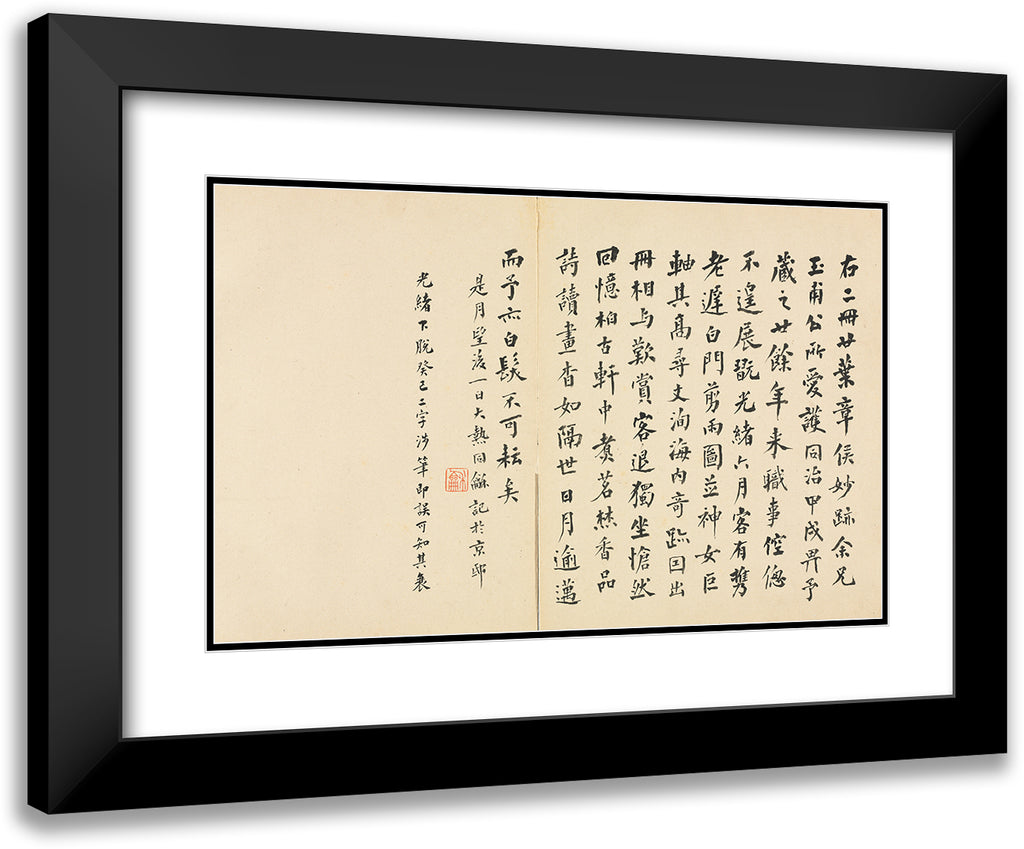 右二冊廿葉章侯妙跡余兄
玉甫公所愛護同治甲戌畀予
藏之廿餘年来職事倥傯
不遑展翫光緒六月客有攜
老遲白門剪雨圖並神女巨
軸其高尋丈洵海内奇跡因出
冊相与歎賞客退獨坐愴然
回憶柏古軒中煑茗焚香品
詩讀畫杳如隔世日月逾邁
而予亦白髮不可耘矣
是月望後一日大熱同龢記於京邸
光緒下脫癸巳二字涉筆即誤可知其衰